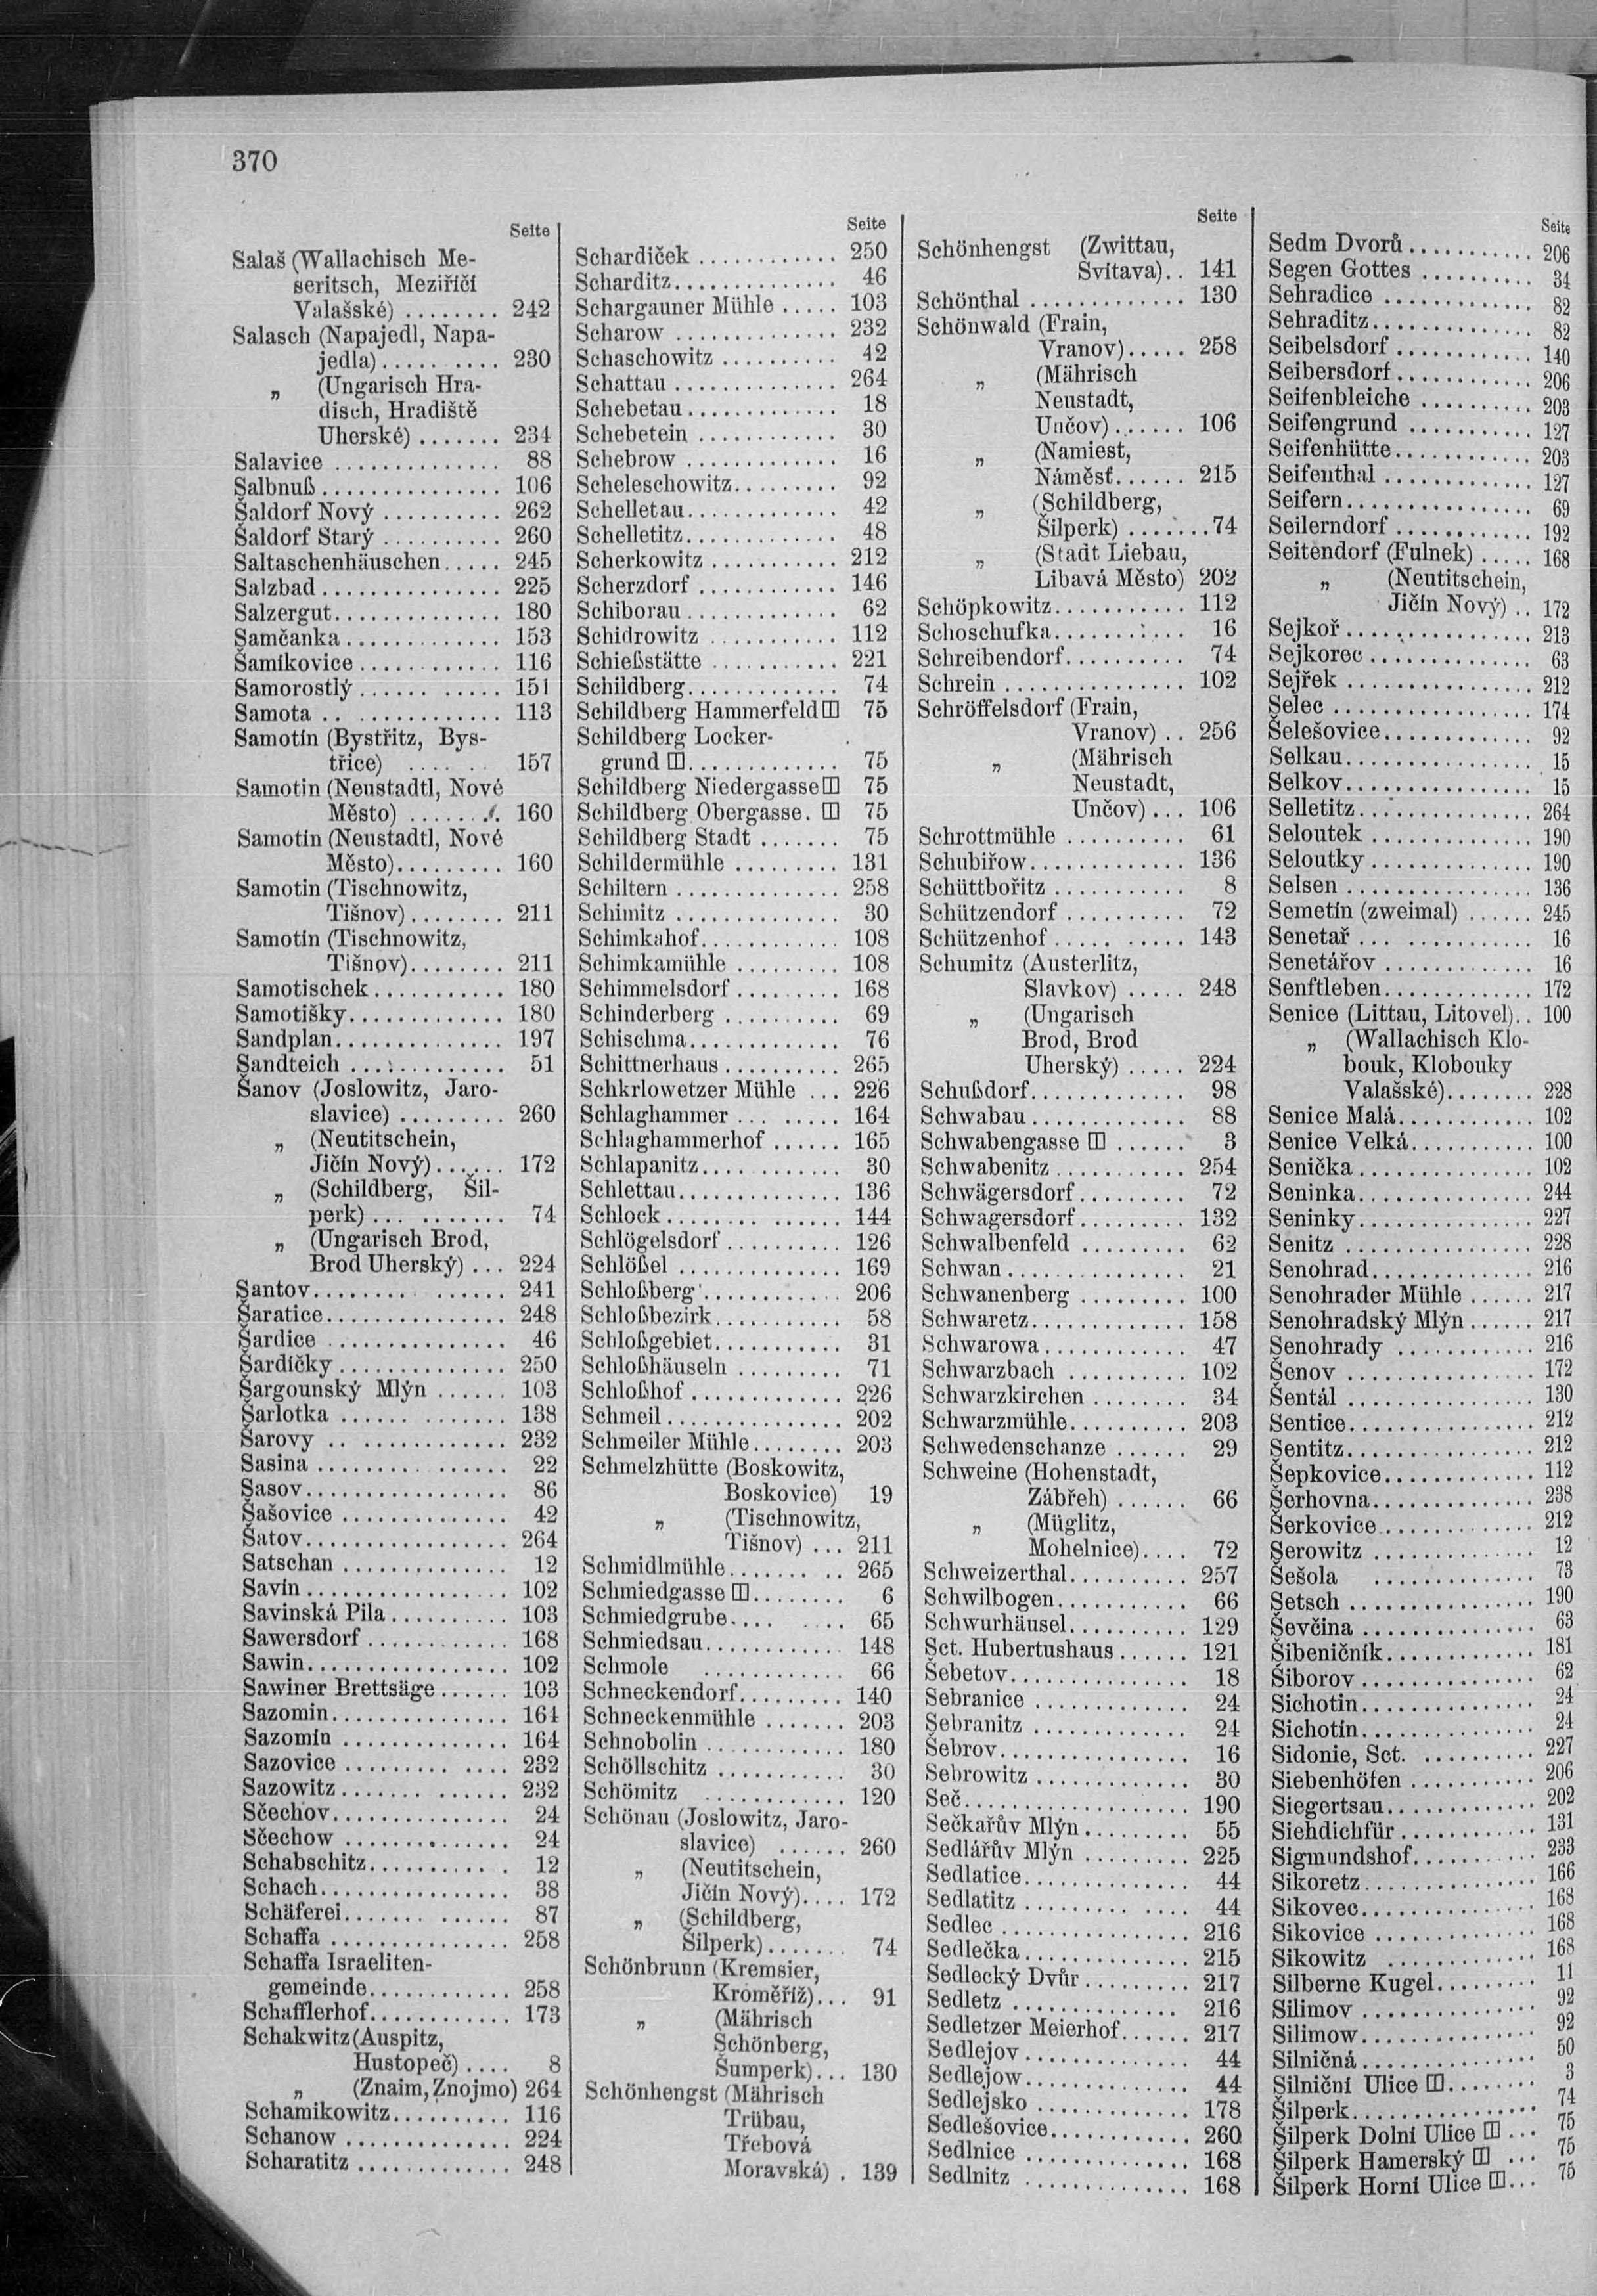 370
Seite
Salaš (Wallachisch Me-
seritsch, Meziříčí
Valašské) ........ 242
Salasch (Napajedl, Napa-
jedla).......... 230
„ (Ungarisch Hra-
disch, Hradiště
Uherské) ....... 234
Salavice ............... 88
Salbnuß................ 106
Šaldorf Nový .......... 262
Šaldorf Starý .......... 260
Saltaschenhäuschen..... 245
Salzbad ............... 225
Salzergut............... 180
Šamčanka .............. 153
Šamíkovice ............. 116
Samorostlý............. 151
Samota ............... 113
Samotín (Bystřitz, Bys-
třice) ....... 157
Samotin (Neustadtl, Nové
Město) ........ 160
Samotín (Neustadtl, Nové
Město)......... 160
Samotin (Tischnowitz,
Tišnov)........ 211
Samotín (Tischnowitz,
Tišnov)........ 211
Samotischek............ 180
Samotišky.............. 180
Sandplan............... 197
Sandteich .............. 51
Šanov (Joslowitz, Jaro-
slavice) ......... 260
„ (Neutitschein,
Jičín Nový)...... 172
„ (Schildberg, Šil-
perk) .......... 74
„ (Ungarisch Brod,
Brod Uherský) ... 224
Šantov................. 241
Šaratice................ 248
Šardice ................ 46
Šardičky ............... 250
Šargounský Mlýn ...... 103
Šarlotka ............... 138
Šarovy ................ 232
Sasina ................. 22
Šasov.................. 86
Šašovice ............... 42
Šatov.................. 264
Satschan ............... 12
Savín .................. 102
Savinská Pila........... 103
Sawersdorf ............. 168
Sawin.................. 102
Sawiner Brettsäge ...... 103
Sazomin................ 164
Sazomín ............... 164
Sazovice ............... 232
Sazowitz............... 232
Sčechov................ 24
Sčechow ............... 24
Schabschitz............. 12
Schach................. 38
Schäferei............... 87
Schaffa ................ 258
Schaffa Israeliten-
gemeinde............ 258
Schafflerhof............. 173
Schakwitz (Auspitz,
Hustopeč) .... 8
„ (Znaim, Znojmo) 264
Schamikowitz........... 116
Schanow ............... 224
Scharatitz .............. 248
Seite
Schardiček ............. 250
Scharditz............... 46
Schargauner Mühle ..... 103
Scharow ............... 232
Schaschowitz ........... 42
Schattau ............... 264
Schebetau.............. 18
Schebetein ............. 30
Schebrow .............. 16
Scheleschowitz.......... 92
Schelletau.............. 42
Schelletitz.............. 48
Scherkowitz ............ 212
Scherzdorf ............. 146
Schiborau .............. 62
Schidrowitz ............ 112
Schießstätte ............ 221
Schildberg.............. 74
Schildberg Hammerfeld 75
Schildberg Locker-
grund .............. 75
Schildberg Niedergasse 75
Schildberg Obergasse. 75
Schildberg Stadt ....... 75
Schildermühle .......... 131
Schiltern ............... 258
Schimitz ............... 30
Schimkahof............. 108
Schimkamühle .......... 108
Schimmelsdorf .......... 168
Schinderberg ........... 69
Schischma.............. 76
Schittnerhaus ........... 265
Schkrlowetzer Mühle ... 226
Schlaghammer .......... 164
Schlaghammerhof ...... 165
Schlapanitz............. 30
Schlettau............... 136
Schlock ................ 144
Schlögelsdorf ........... 126
Schlößel ............... 169
Schloßberg ............. 206
Schloßbezirk............ 58
Schloßgebiet............ 31
Schloßhäuseln .......... 71
Schloßhof .............. 226
Schmeil................. 202
Schmeiler Mühle ........ 203
Schmelzhütte (Boskowitz,
Boskovice) 19
„ (Tischnowitz,
Tišnov) ... 211
Schmidlmühle........... 265
Schmiedgasse ......... 6
Schmiedgrube........... 65
Schmiedsau............. 148
Schmole ............... 66
Schneckendorf.......... 140
Schneckenmühle ....... 203
Schnobolin ............. 180
Schöllschitz ............ 30
Schömitz .............. 120
Schönau (Joslowitz, Jaro-
slavice) ...... 260
„ (Neutitschein,
Jičín Nový).... 172
„ (Schildberg,
Šilperk)....... 74
Schönbrunn (Kremsier,
Kroměříž)... 91
„ (Mährisch
Schönberg,
Šumperk)... 130
Schönhengst (Mährisch
Trübau,
Třebová
Moravská) . 139
Seite
Schönhengst (Zwittau,
Svitava).. 141
Schönthal .............. 130
Schönwald (Frain,
Vranov)..... 258
„ (Mährisch
Neustadt,
Unčov) ...... 106
„ (Namiest,
Náměsť...... 215
„ (Schildberg,
Šilperk) ....... 74
„ (Stadt Liebau,
Libavá Město) 202
Schöpkowitz............ 112
Schoschufka............ 16
Schreibendorf........... 74
Schrein ................ 102
Schröffelsdorf (Frain,
Vranov) .. 256
„ (Mährisch
Neustadt,
Unčov) ... 106
Schrottmühle ........... 61
Schubiřow.............. 136
Schüttbořitz ............ 8
Schützendorf ........... 72
Schützenhof ............ 143
Schumitz (Austerlitz,
Slavkov) ..... 248
„ (Ungarisch
Brod, Brod
Uherský) ..... 224
Schußdorf.............. 98
Schwabau .............. 88
Schwabengasse ...... 3
Schwabenitz ............ 254
Schwägersdorf.......... 72
Schwagersdorf.......... 132
Schwalbenfeld .......... 62
Schwan ................ 21
Schwanenberg .......... 100
Schwaretz.............. 158
Schwarowa............. 47
Schwarzbach ........... 102
Schwarzkirchen ......... 34
Schwarzmühle.......... 203
Schwedenschanze ...... 29
Schweine (Hohenstadt,
Zábřeh) ...... 66
„ (Müglitz,
Mohelnice).... 72
Schweizerthal........... 257
Schwilbogen............ 66
Schwurhäusel........... 129
Sct. Hubertushaus ...... 121
Šebetov................ 18
Sebranice .............. 24
Sebranitz .............. 24
Šebrov................. 16
Sebrowitz .............. 30
Seč.................... 190
Sečkařův Mlýn ......... 55
Sedlářův Mlýn ......... 225
Sedlatice............... 44
Sedlatitz ............... 44
Sedlec ................. 216
Sedlečka ............... 215
Sedlecký Dvůr .......... 217
Sedletz ................ 216
Sedletzer Meierhof...... 217
Sedlejov ............... 44
Sedlejow ............... 44
Sedlejsko .............. 178
Sedlešovice............. 260
Sedlnice ............... 168
Sedlnitz ............... 168
Seite
Sedm Dvorů ........... 206
Segen Gottes .......... 34
Sehradice .............. 82
Sehraditz............... 82
Seibelsdorf ............. 140
Seibersdorf............. 206
Seifenbleiche ........... 203
Seifengrund ............ 127
Seifenhütte............. 203
Seifenthal .............. 127
Seifern................. 69
Seilerndorf ............. 192
Seitendorf (Fulnek) ..... 168
„ (Neutitschein,
Jičín Nový) .. 172
Sejkoř................. 213
Sejkorec ............... 63
Sejřek ................. 212
Šelec .................. 174
Šelešovice.............. 92
Selkau................. 15
Selkov................. 15
Selletitz................ 264
Seloutek ............... 190
Seloutky ............... 190
Selsen ................. 136
Semetín (zweimal) ...... 245
Senetař ................ 16
Senetářov .............. 16
Senftleben.............. 172
Senice (Littau, Litovel).. 100
„ (Wallachisch Klo-
bouk, Klobouky
Valašské)........ 228
Senice Malá............ 102
Senice Velká........... 100
Senička ................ 102
Seninka................ 244
Seninky................ 227
Senitz ................. 228
Senohrad............... 216
Senohrader Mühle ...... 217
Senohradský Mlýn ...... 217
Senohrady ............. 216
Šenov ................. 172
Šentál ................. 130
Sentice................. 212
Sentitz................. 212
Šepkovice.............. 112
Šerhovna............... 238
Šerkovice .............. 212
Serowitz ............... 12
Šešola ............... 73
Setsch ................. 190
Ševčina ................ 63
Šibeničník.............. 181
Šiborov ................ 62
Sichotin................ 24
Sichotín................ 24
Sidonie, Sct. .......... 227
Siebenhöfen ............ 206
Siegertsau.............. 202
Siehdichfür ............ 131
Sigmundshof............ 233
Sikoretz................ 166
Sikovec................ 168
Sikovice ............... 168
Sikowitz .............. 168
Silberne Kugel......... 11
Silimov ................ 92
Silimow................ 92
Silničná ................ 50
Silniční Ulice ........ 3
Šilperk................. 74
Šilperk Dolní Ulice ... 75
Šilperk Hamerský ... 75
Šilperk Horní Ulice ... 75